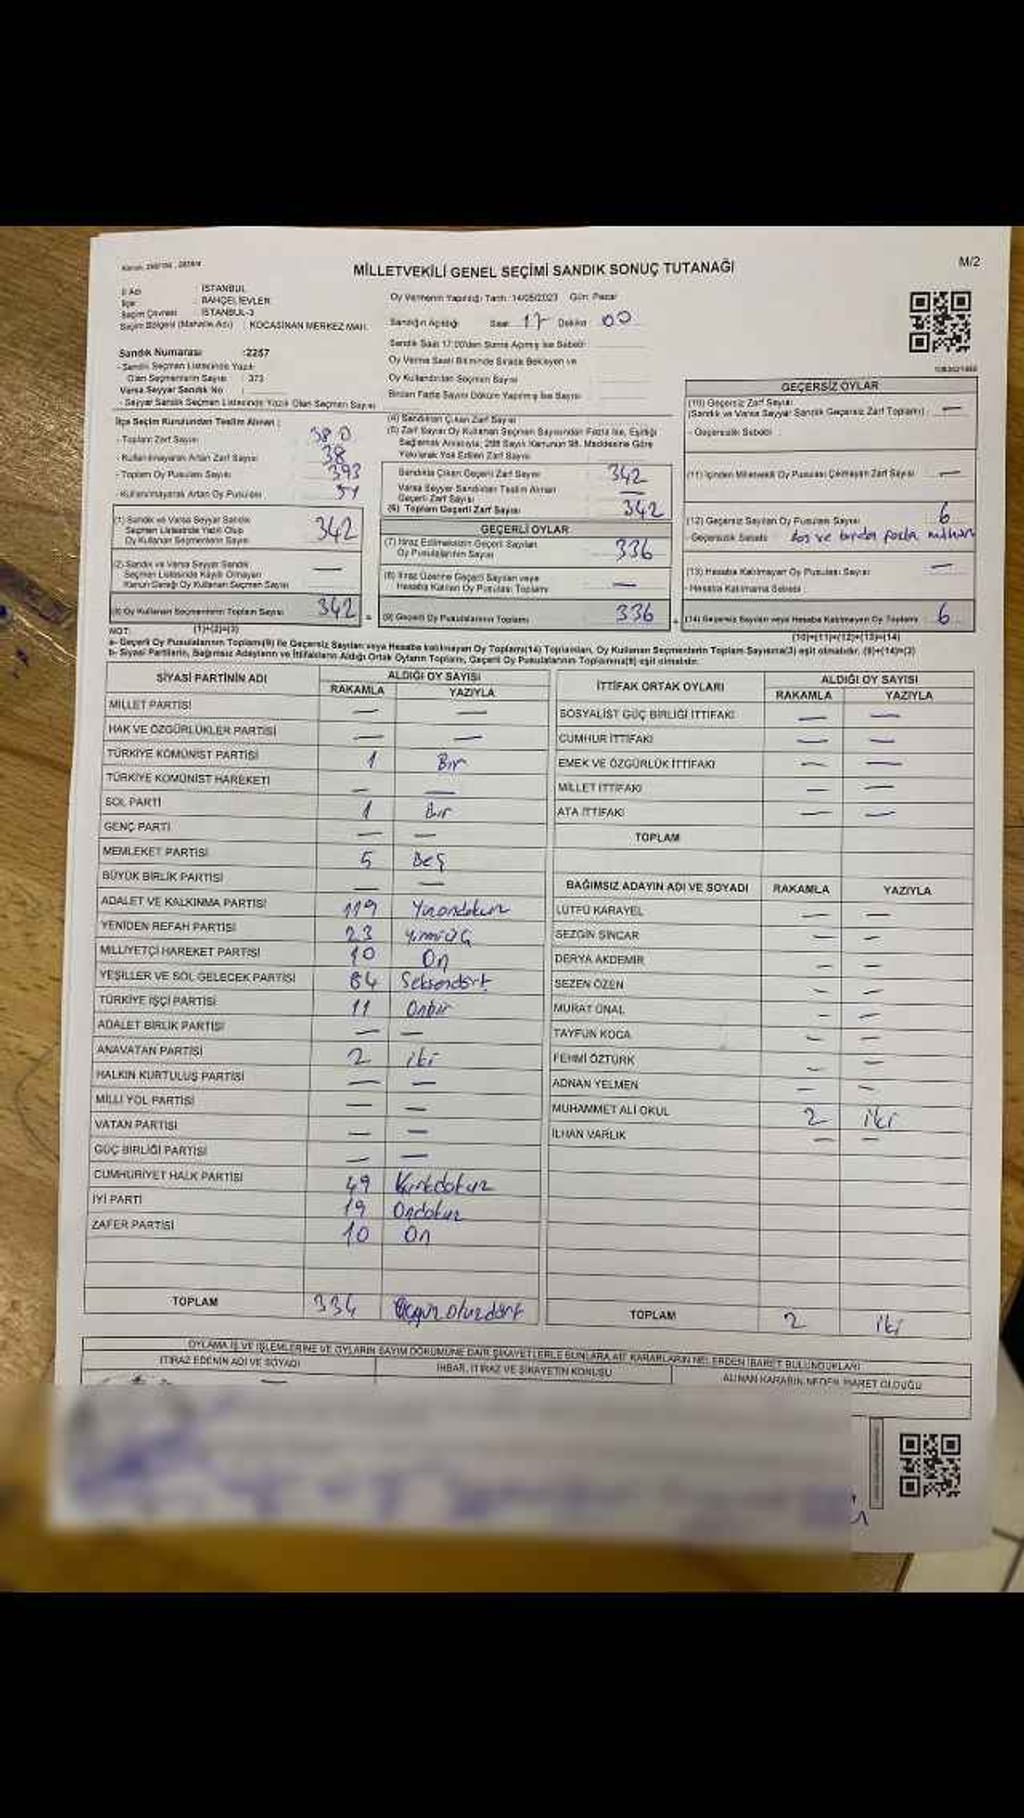 MİLLETVEKİLİ GENEL SEÇİMİ SANDIK SONUÇ TUTANAĞI
M/2
İl Adı : İSTANBUL
İlçe : BAHÇELİEVLER
Seçim Çevresi : İSTANBUL-3
Seçim Bölgesi (Mahalle Adı) : KOCASİNAN MERKEZ MAH.
Sandık Numarası :2257
- Sandık Seçmen Listesinde Yazılı
Olan Seçmenlerin Sayısı : 373
Varsa Seyyar Sandık No :
- Seyyar Sandık Seçmen Listesinde Yazılı Olan Seçmen Sayısı
Oy Vermenin Yapıldığı Tarih: 14/05/2023 Gün: Pazar
Sandığın Açıldığı Saat 17 Dakika 00
Sandık Saat 17:00'den Sonra Açılmış İse Sebebi
Oy Verme Saati Bitiminde Sırada Bekleyen ve
Oy Kullandırılan Seçmen Sayısı
Birden Fazla Sayım Döküm Yapılmış İse Sayısı
İlçe Seçim Kurulundan Teslim Alınan :
- Toplam Zarf Sayısı 380
- Kullanılmayarak Artan Zarf Sayısı 38
- Toplam Oy Pusulası Sayısı 393
- Kullanılmayarak Artan Oy Pusulası 51
(1) Sandık ve Varsa Seyyar Sandık
Seçmen Listesinde Yazılı Olup
Oy Kullanan Seçmenlerin Sayısı 342
(2) Sandık ve Varsa Seyyar Sandık
Seçmen Listesinde Kayıtlı Olmayan
Kanun Gereği Oy Kullanan Seçmen Sayısı —
(3) Oy Kullanan Seçmenlerin Toplam Sayısı 342
(1)+(2)=(3)
(4) Sandıktan Çıkan Zarf Sayısı
(5) Zarf Sayısı Oy Kullanan Seçmen Sayısından Fazla İse, Eşitliği
Sağlamak Amacıyla, 298 Sayılı Kanunun 98. Maddesine Göre
Yakılarak Yok Edilen Zarf Sayısı
Sandıkta Çıkan Geçerli Zarf Sayısı 342
Varsa Seyyar Sandıktan Teslim Alınan
Geçerli Zarf Sayısı —
(6) Toplam Geçerli Zarf Sayısı 342
GEÇERLİ OYLAR
(7) İtiraz Edilmeksizin Geçerli Sayılan
Oy Pusulalarının Sayısı 336
(8) İtiraz Üzerine Geçerli Sayılan veya
Hesaba Katılan Oy Pusulası Toplamı —
(9) Geçerli Oy Pusulalarının Toplamı 336
GEÇERSİZ OYLAR
(10) Geçersiz Zarf Sayısı
(Sandık ve Varsa Seyyar Sandık Geçersiz Zarf Toplamı) —
- Geçersizlik Sebebi :
(11) İçinden Milletvekili Oy Pusulası Çıkmayan Zarf Sayısı —
(12) Geçersiz Sayılan Oy Pusulası Sayısı 6
- Geçersizlik Sebebi boş ve birden fazla mühür
(13) Hesaba Katılmayan Oy Pusulası Sayısı —
- Hesaba Katılmama Sebebi :
(14) Geçersiz Sayılan veya Hesaba Katılmayan Oy Toplamı 6
(10)+(11)+(12)+(13)=(14)
NOT:
a- Geçerli Oy Pusulalarının Toplamı(9) ile Geçersiz Sayılan veya Hesaba katılmayan Oy Toplamı(14) Toplamları, Oy Kullanan Seçmenlerin Toplam Sayısına(3) eşit olmalıdır. (9)+(14)=(3)
b- Siyasi Partilerin, Bağımsız Adayların ve İttifakların Aldığı Ortak Oyların Toplamı, Geçerli Oy Pusulalarının Toplamına(9) eşit olmalıdır.
SİYASİ PARTİNİN ADI ALDIĞI OY SAYISI
RAKAMLA YAZIYLA
MİLLET PARTİSİ — —
HAK VE ÖZGÜRLÜKLER PARTİSİ — —
TÜRKİYE KOMÜNİST PARTİSİ 1 Bir
TÜRKİYE KOMÜNİST HAREKETİ — —
SOL PARTİ 1 Bir
GENÇ PARTİ — —
MEMLEKET PARTİSİ 5 Beş
BÜYÜK BİRLİK PARTİSİ — —
ADALET VE KALKINMA PARTİSİ 119 Yüzondokuz
YENİDEN REFAH PARTİSİ 23 Yirmiüç
MİLLİYETÇİ HAREKET PARTİSİ 10 On
YEŞİLLER VE SOL GELECEK PARTİSİ 84 Seksendört
TÜRKİYE İŞÇİ PARTİSİ 11 Onbir
ADALET BİRLİK PARTİSİ — —
ANAVATAN PARTİSİ 2 iki
HALKIN KURTULUŞ PARTİSİ — —
MİLLİ YOL PARTİSİ — —
VATAN PARTİSİ — —
GÜÇ BİRLİĞİ PARTİSİ — —
CUMHURİYET HALK PARTİSİ 49 Kırkdokuz
İYİ PARTİ 19 Ondokuz
ZAFER PARTİSİ 10 On
TOPLAM 334 Üçyüzotuzdört
İTTİFAK ORTAK OYLARI ALDIĞI OY SAYISI
RAKAMLA YAZIYLA
SOSYALİST GÜÇ BİRLİĞİ İTTİFAKI — —
CUMHUR İTTİFAKI — —
EMEK VE ÖZGÜRLÜK İTTİFAKI — —
MİLLET İTTİFAKI — —
ATA İTTİFAKI — —
TOPLAM
BAĞIMSIZ ADAYIN ADI VE SOYADI RAKAMLA YAZIYLA
LÜTFÜ KARAYEL — —
SEZGİN SİNCAR — —
DERYA AKDEMİR — —
SEZEN ÖZEN — —
MURAT ÜNAL — —
TAYFUN KOCA — —
FEHMİ ÖZTÜRK — —
ADNAN YELMEN — —
MUHAMMET ALİ OKUL 2 iki
İLHAN VARLIK — —
TOPLAM 2 iki
OYLAMA İŞ VE İŞLEMLERİNE VE OYLARIN SAYIM DÖKÜMÜNE DAİR ŞİKAYETLERLE BUNLARA AİT KARARLARIN NELERDEN İBARET BULUNDUKLARI
İTİRAZ EDENİN ADI VE SOYADI
İHBAR, İTİRAZ VE ŞİKAYETİN KONUSU
ALINAN KARARIN NEDEN İBARET OLDUĞU